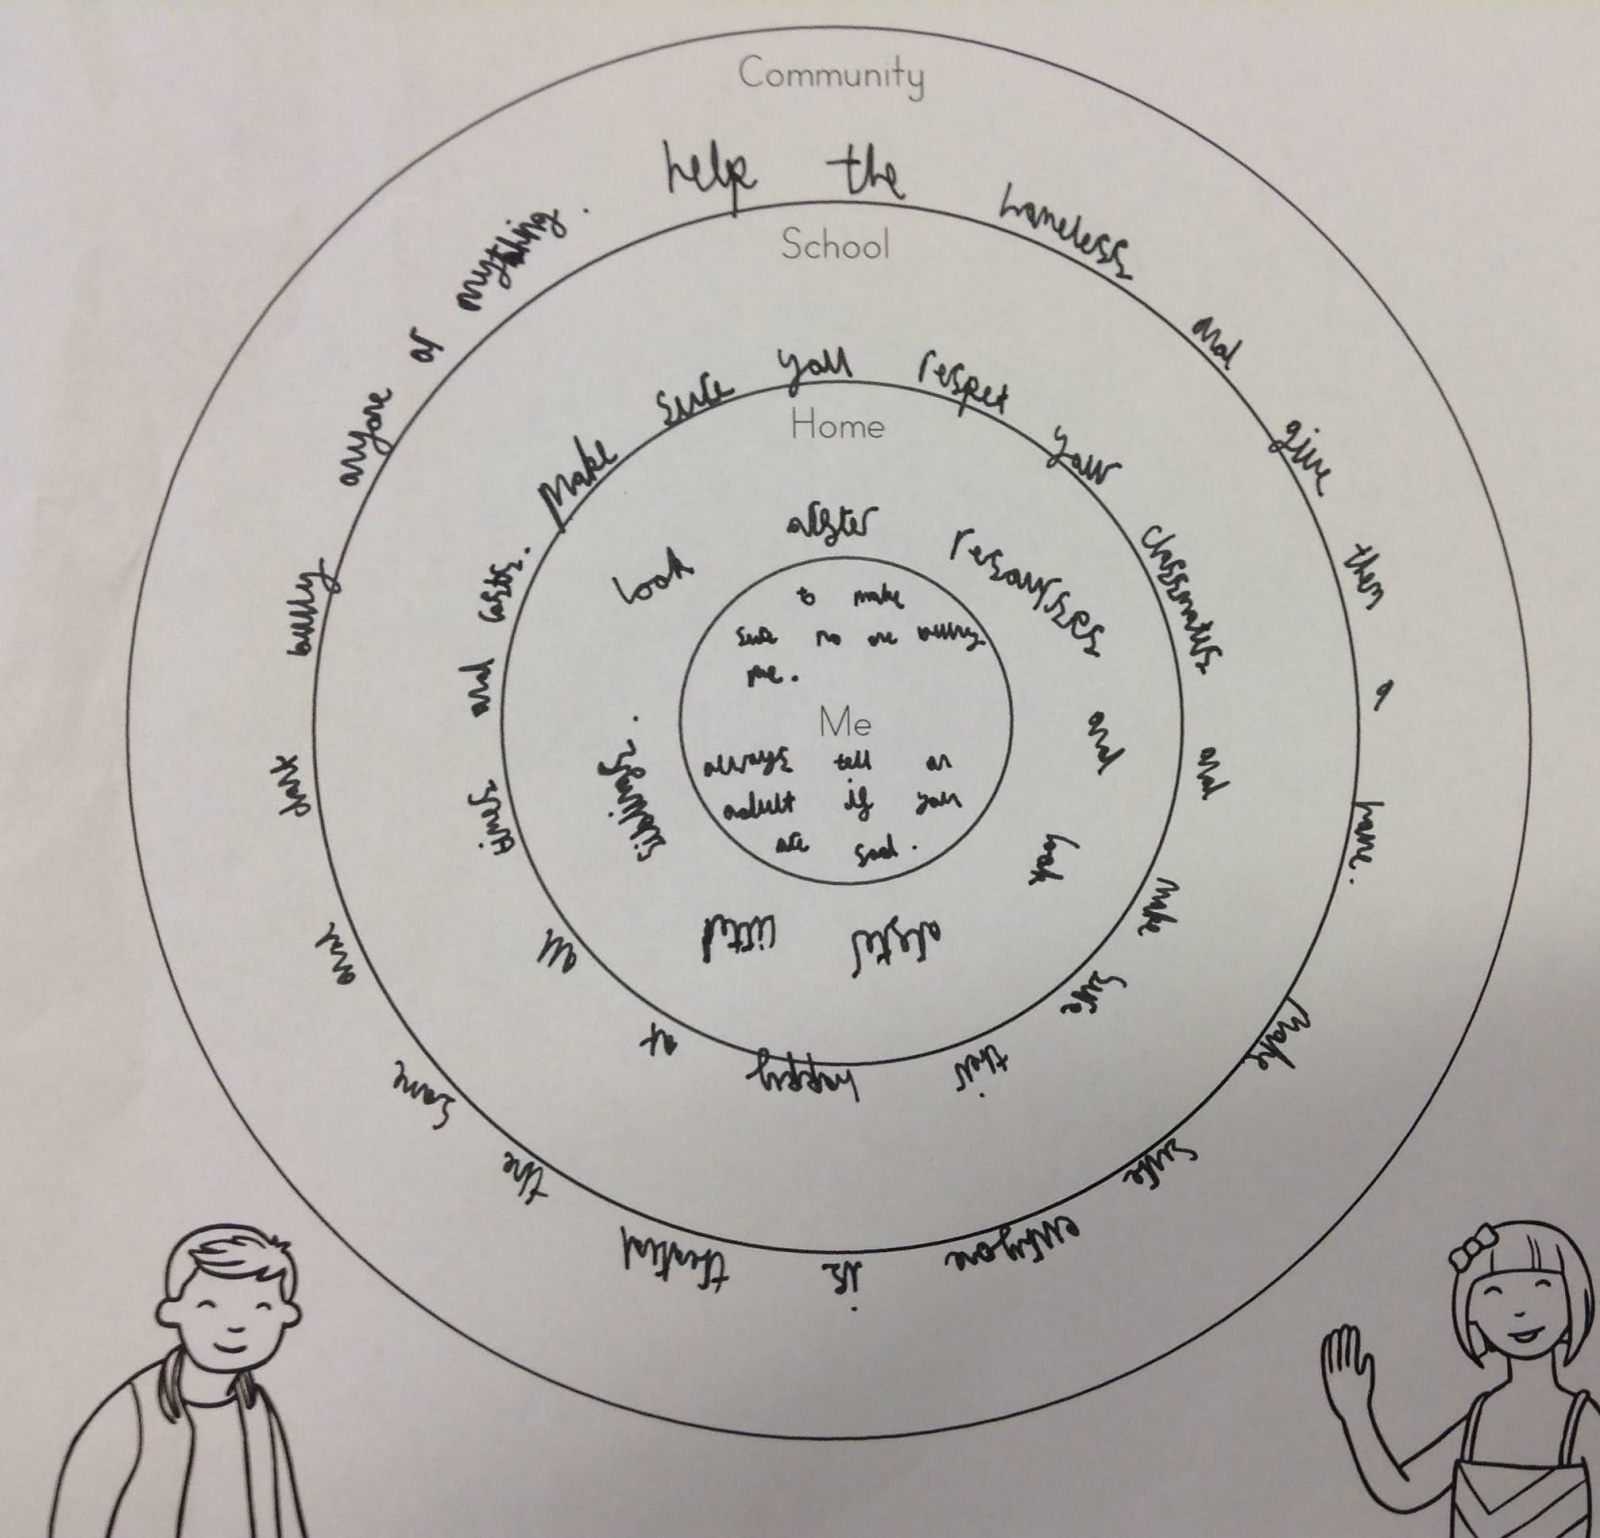 Community
help the homeless and give them a home. Make sure everyone is treated the same and dont bully anyone or anything.
School
Make sure you respet your classmates and make sure their happy at all times and costs.
Home
Look afster resoursses and look afster littel siblings.
to make
sure no one bullys
me.
Me
always tell an
adult if you
are sad.